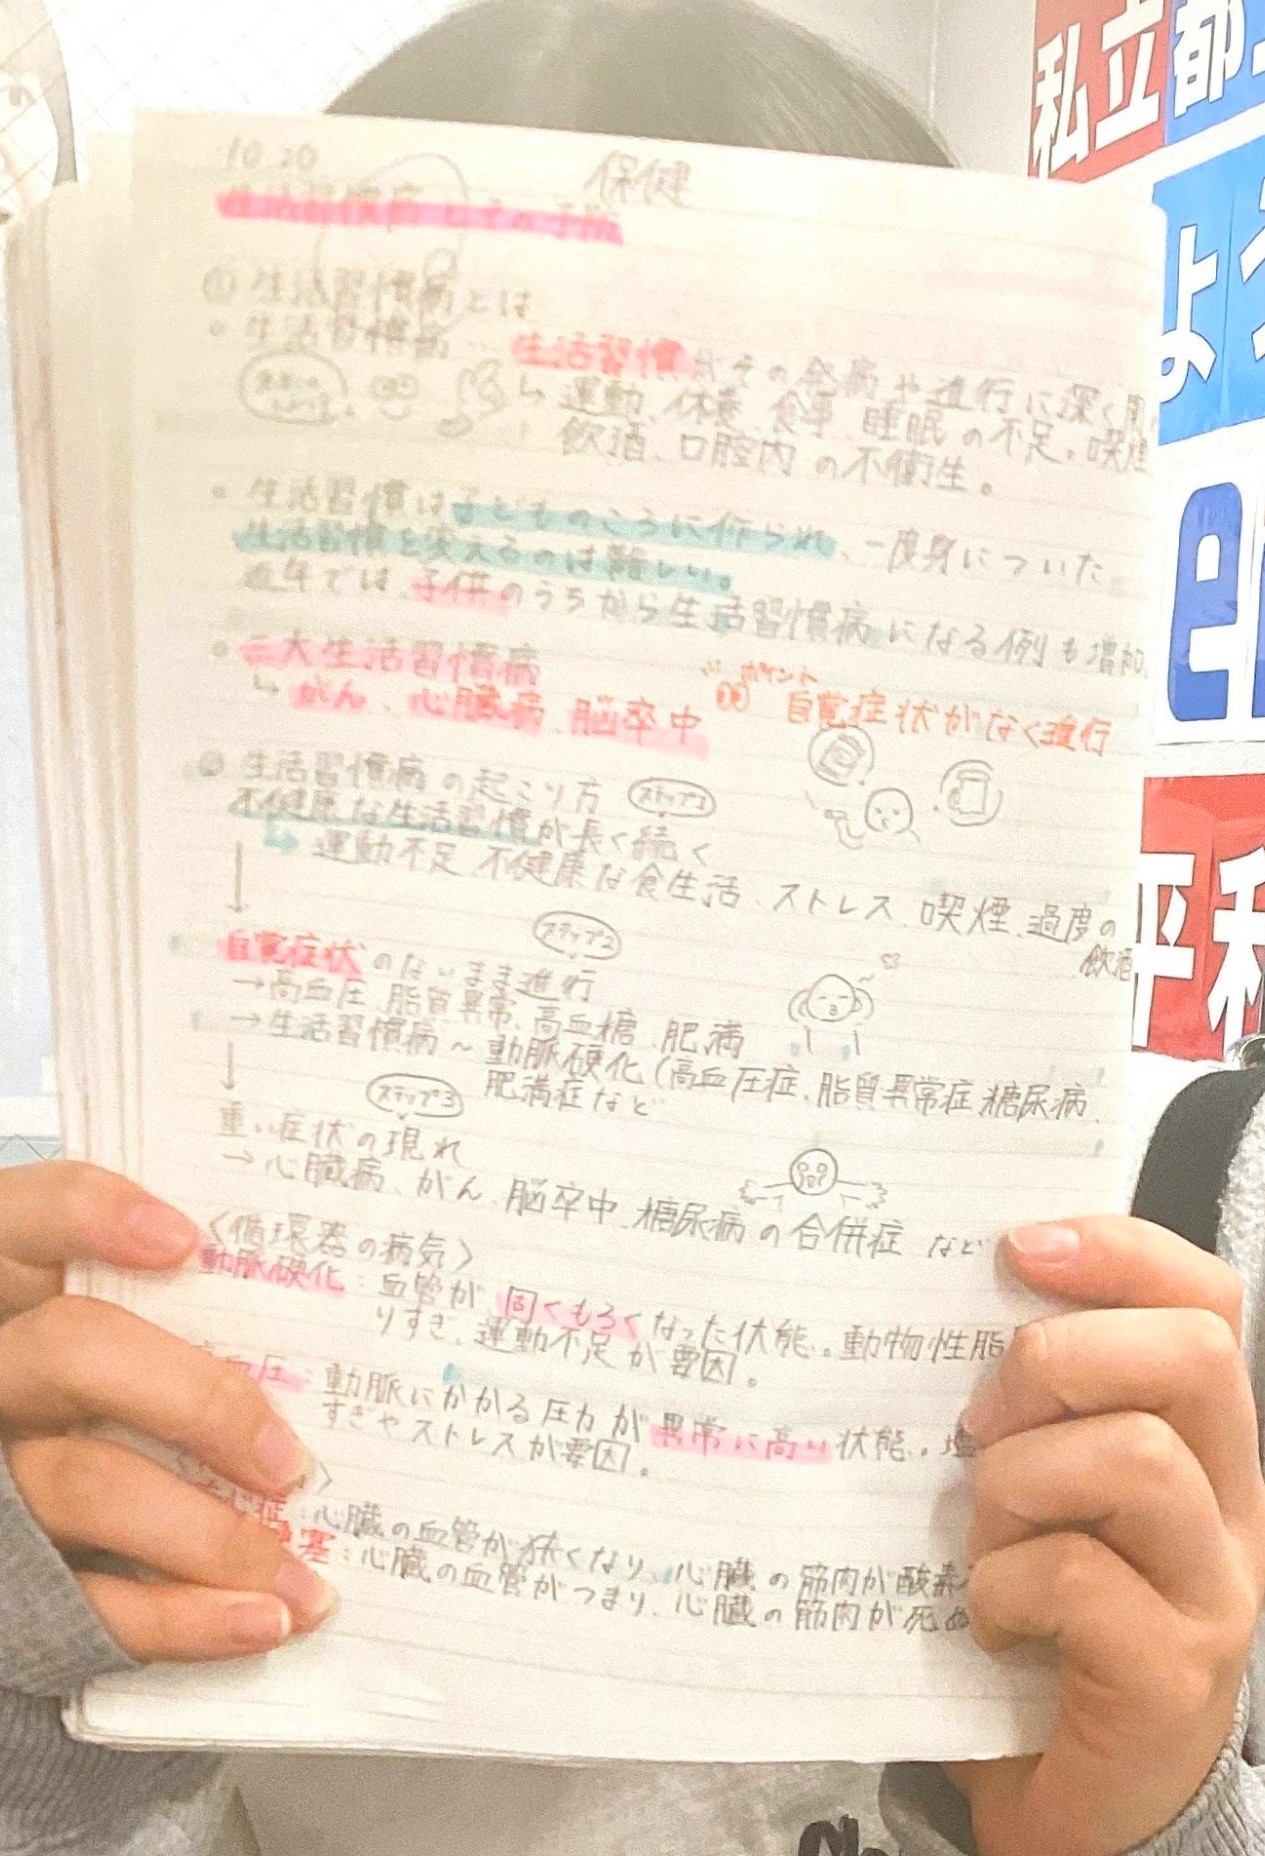 10.20
保健
生活習慣病とその予防
① 生活習慣病とは
・生活習慣病
生活習慣がその発病や進行に深く関
↳運動、休養、食事、睡眠の不足。喫煙
飲酒、口腔内の不衛生。
・生活習慣は子どものころに作られ、一度身についた
生活習慣を変えるのは難しい。
近年では、子供のうちから生活習慣病になる例も増加
・三大生活習慣病
↳がん、心臓病、脳卒中
ポイント
自覚症状がなく進行
② 生活習慣病の起こり方 ステップ1
不健康な生活習慣が長く続く
↳運動不足 不健康な食生活、ストレス、喫煙、過度の
飲酒
ステップ2
自覚症状のないまま進行
→高血圧、脂質異常、高血糖、肥満
→生活習慣病~動脈硬化(高血圧症、脂質異常症、糖尿病、
肥満症など
ステップ3
重い症状の現れ
→心臓病、がん、脳卒中、糖尿病の合併症 など
〈循環器の病気〉
動脈硬化:血管が、固くもろくなった状態。動物性脂
りすぎ、運動不足が要因。
血圧:動脈にかかる圧力が異常に高い状態。塩
すぎやストレスが要因。
〉
:心臓の血管が狭くなり、心臓の筋肉が酸素
塞:心臓の血管がつまり、心臓の筋肉が死ぬ
私立都
よう
e
平和